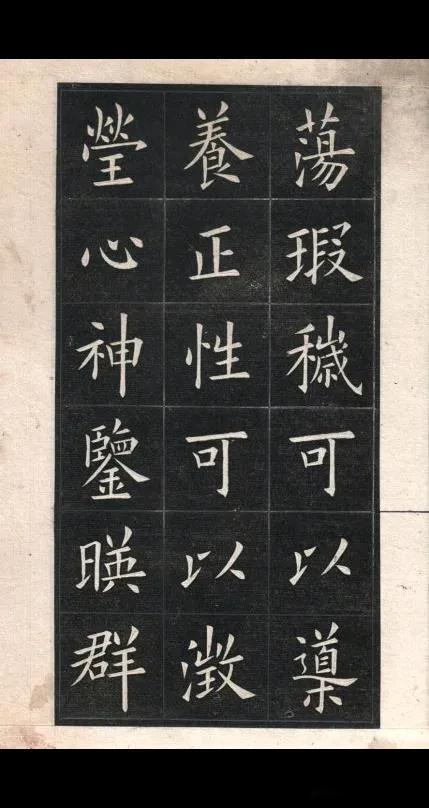 蕩瑕穢可以導
養正性可以澂
瑩心神鑒暎群